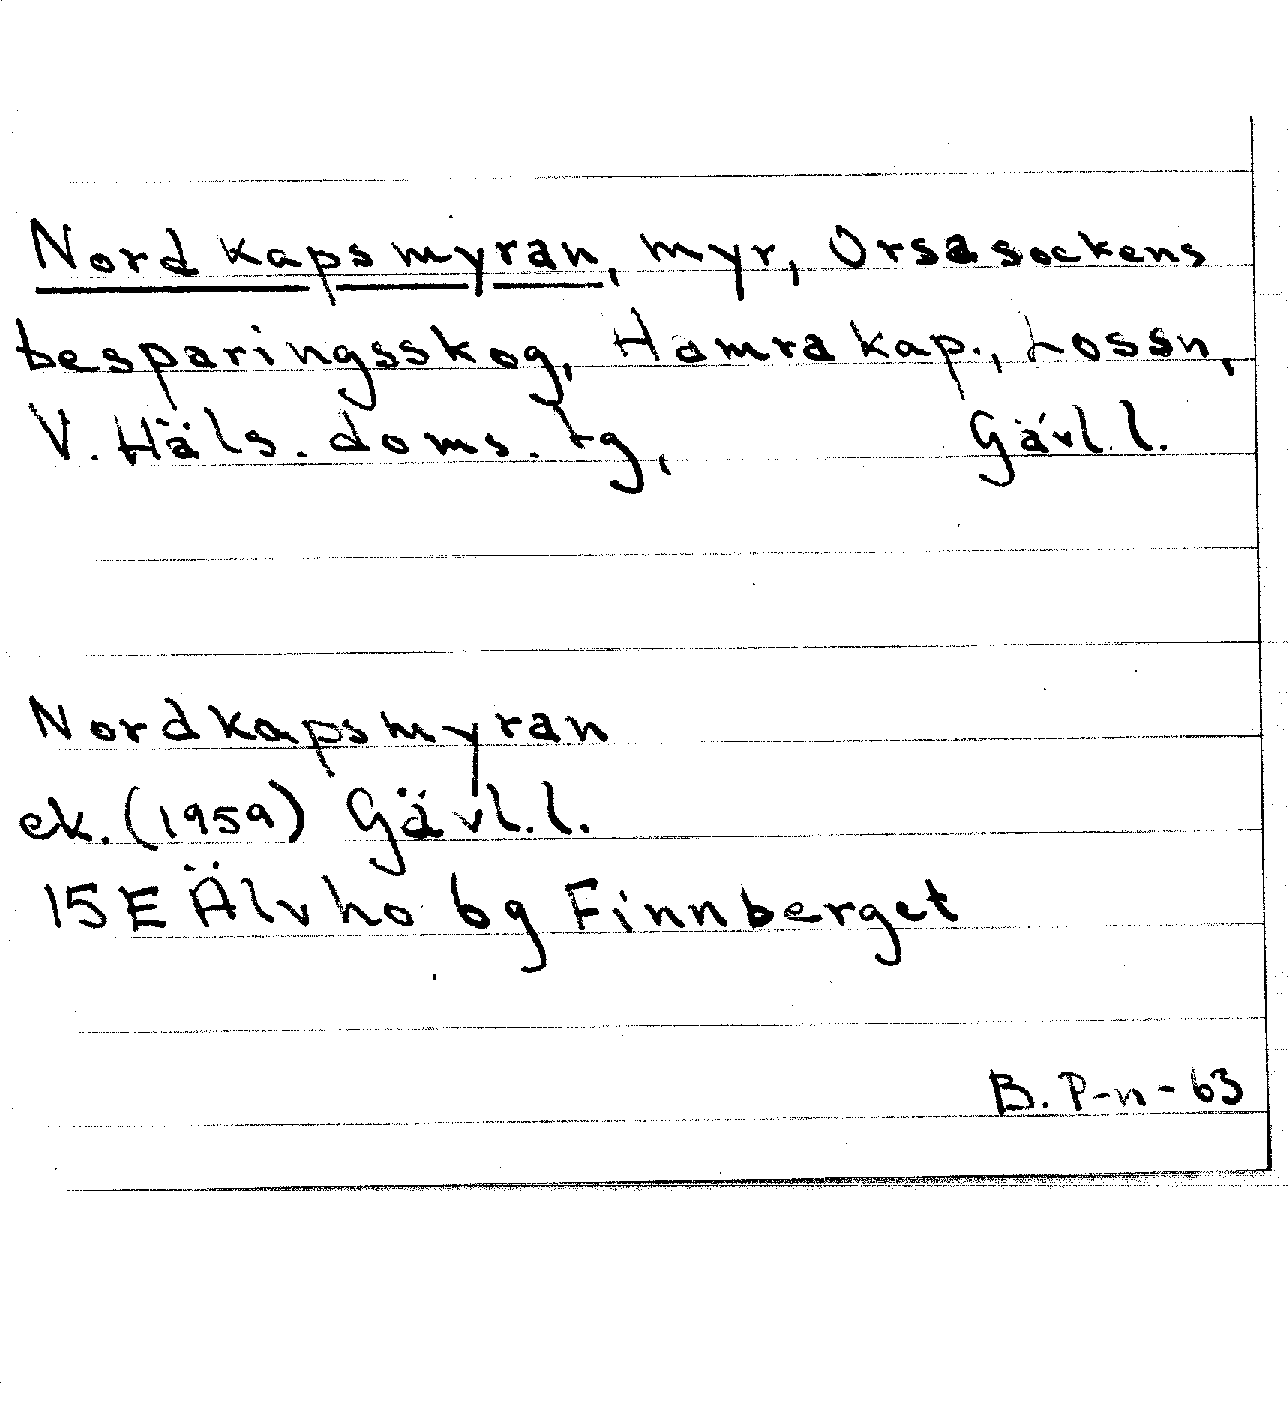 Nordkapsmyran, myr, Orsa sockens
besparingsskog, Hamra kap., Lossn,
V. Häls. doms. tg, Gävl. l.
Nordkapsmyran
ek. (1959) Gävl. l.
15E Älvho 6g Finnberget
B. P-n-63